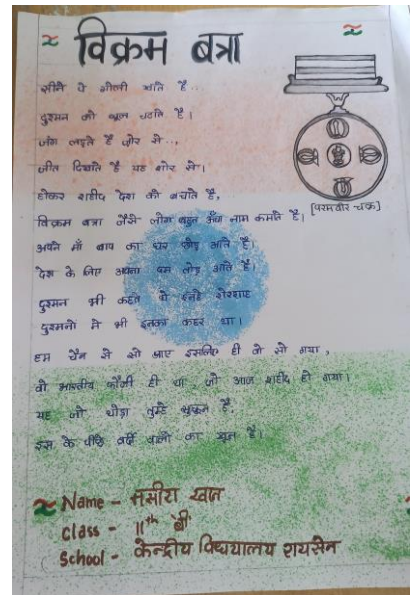 विक्रम बत्रा
सीने पे गोली खाते है..
दुश्मन को धूल चटाते है।
जंग लड़ते है जोर से..,
जीत दिखाते है यह शोर से।
होकर शहीद देश को बचाते है,
विक्रम बत्रा जैसे लोग बहुत ऊँचा नाम कमाते है।
[परमवीर चक्र]
अपने माँ बाप का घर छोड़ आते है।
देश के लिए अपना दम तोड़ आते है।
दुश्मन भी कहते थे इनहे शेरशाह
दुश्मनो मे भी इनका कहर था।
हम चैन से सो पाए इसलिए ही वो सो गया,
वो भारतीय फौजी ही था जो आज शहीद हो गया।
यह जो थोड़ा तुम्हे सुकून है,
इस के पीछे वर्दी वालो का खून है।
Name - समीरा खान
Class - 11th बी
School - केन्द्रीय विद्ययालय रायसेन